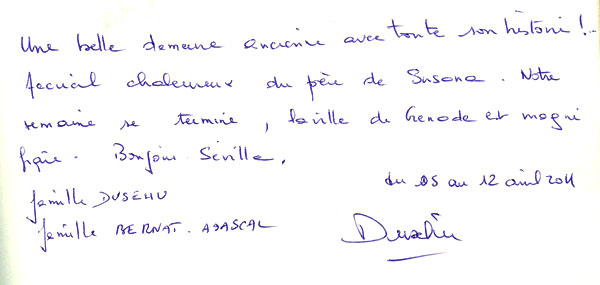 Une belle demeure ancienne avec toute son histoire !
Accueil chaleureux du père de Susana. Notre
semaine se termine, la ville de Grenade est magni
fique. Bonjour Séville.
famille DUSEHU
famille BERNAT.
du 05 au 12 avril 2011